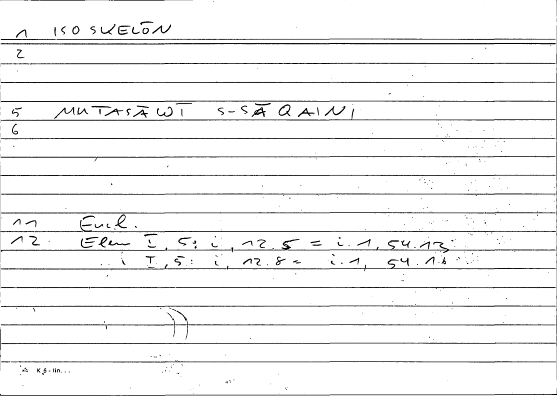 1 ISOSKELŌN
2
5 MUTASĀWĪ S-SĀQAINI
6
11 Eucl.
12 Elem I, 5: i, 12.5 = i.1, 54.13
i I, 5: i, 12.8 = i.1, 54.